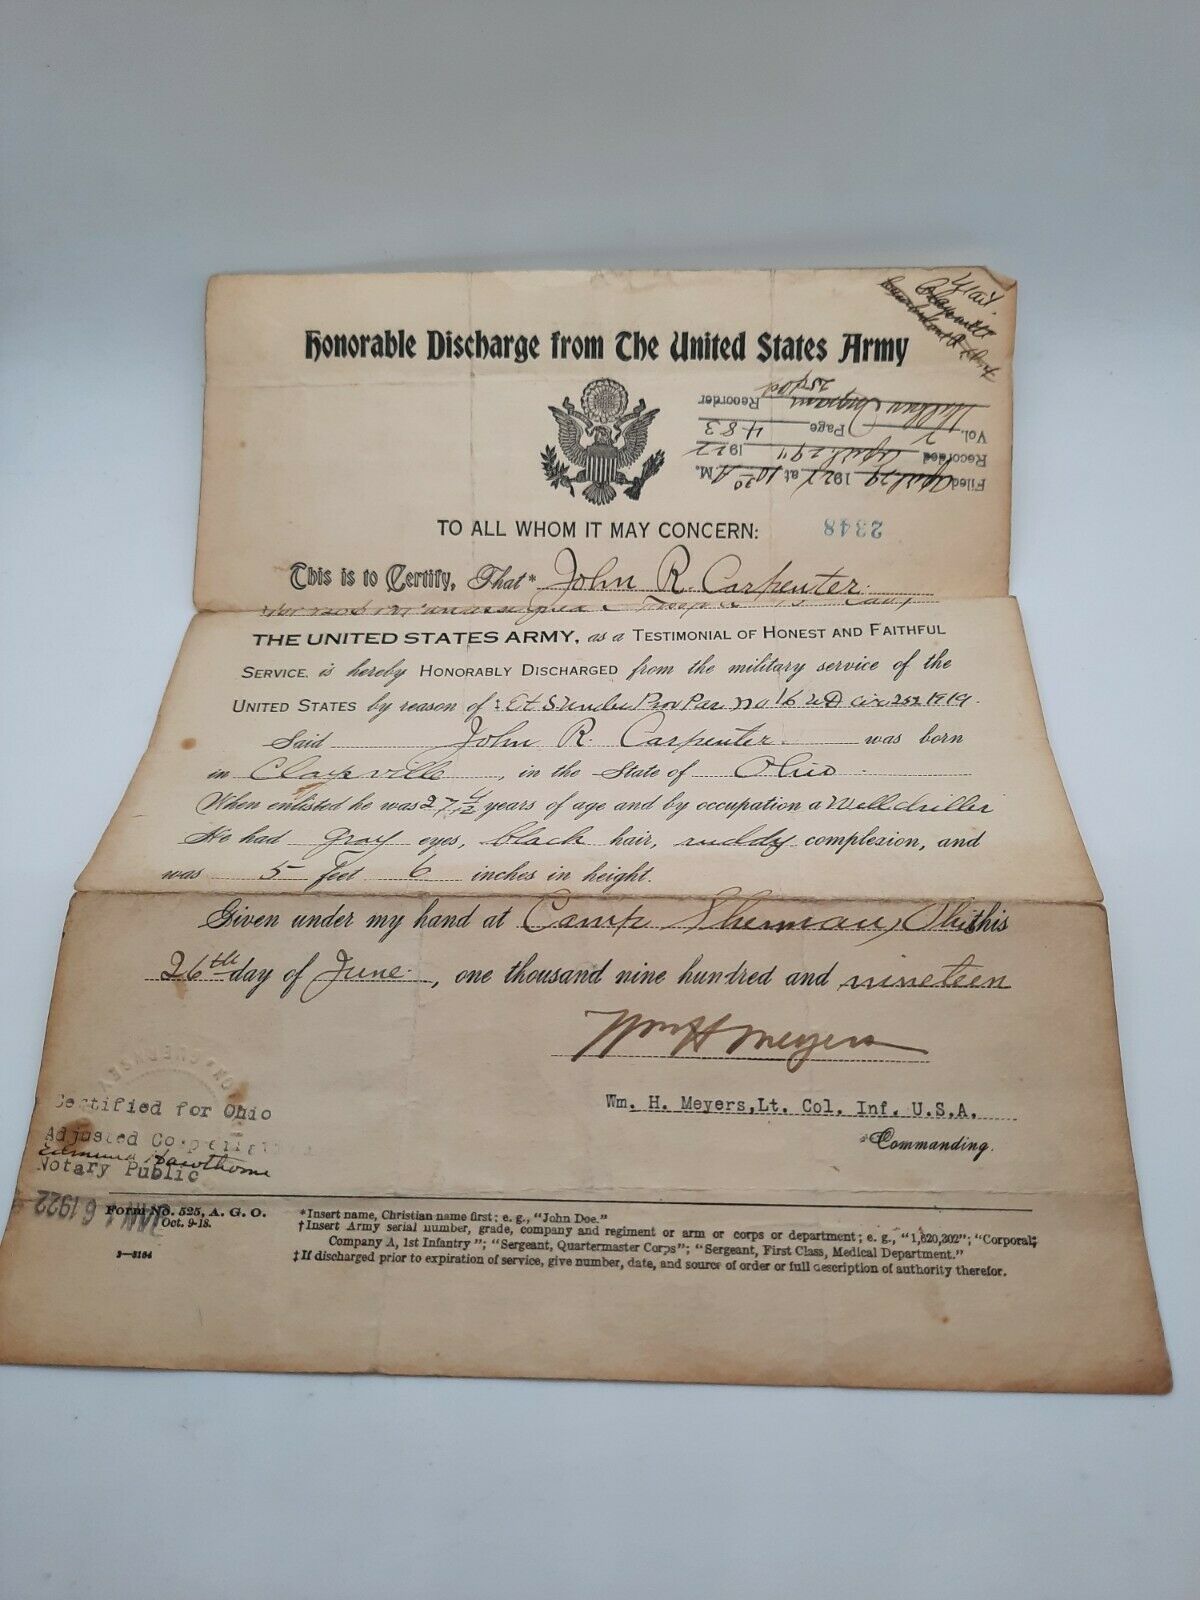 Honorable Discharge from The United States Army
Filed April 29 1927 at 10 30 A M.
Recorded April 29 1927
Vol. 7 Page 483
Recorder
2348
TO ALL WHOM IT MAY CONCERN:
This is to Certify, That* John R. Carpenter
THE UNITED STATES ARMY, as a TESTIMONIAL OF HONEST AND FAITHFUL
SERVICE, is hereby HONORABLY DISCHARGED from the military service of the
UNITED STATES by reason of ‡ E T S Under Par No 16 W D Cir 252 1919.
Said John R. Carpenter was born
in Claysville, in the State of Ohio
When enlisted he was 27 years of age and by occupation a Welldriller
He had gray eyes, black hair, ruddy complexion, and
was 5 feet 6 inches in height.
Given under my hand at Camp Sherman, Ohio this
26th day of June, one thousand nine hundred and nineteen
Wm H Meyers
Wm. H. Meyers, Lt. Col. Inf. U.S.A.
Commanding.
Certified for Ohio
Adjusted
Edmund Hawthorne
Notary Public
JAN 16 1922
Form No. 525, A. G. O.
Oct. 9-18.
3—3164
*Insert name, Christian name first; e. g., "John Doe."
†Insert Army serial number, grade, company and regiment or arm or corps or department; e. g., "1,620,302"; "Corporal,
Company A, 1st Infantry"; "Sergeant, Quartermaster Corps"; "Sergeant, First Class, Medical Department."
‡If discharged prior to expiration of service, give number, date, and source of order or full description of authority therefor.